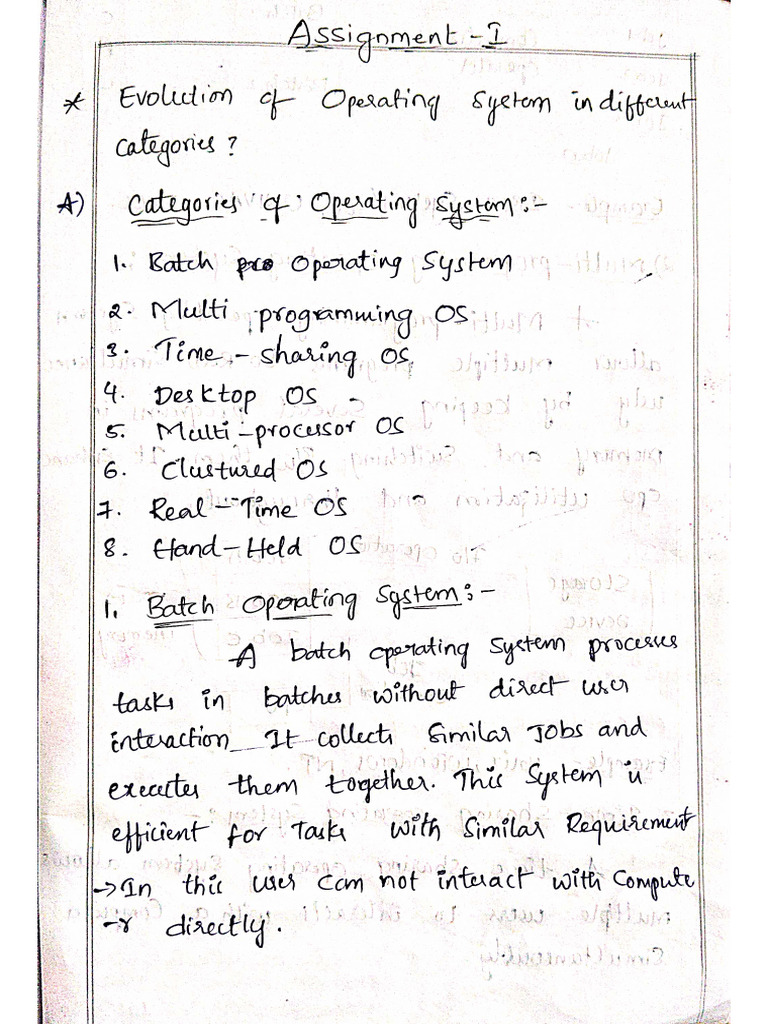 Assignment - I
* Evolution of Operating System in different
categories?
A) Categories of Operating System:-
1. Batch pro Operating System
2. Multi programming OS
3. Time - sharing OS
4. Desktop OS
5. Multi - processor OS
6. Clustured OS
7. Real - Time OS
8. Hand - Held OS
1. Batch Operating System:-
A batch operating System processes
tasks in batches without direct user
interaction It collects Similar Jobs and
executes them together. This System is
efficient for Tasks with Similar Requirement
→ In this user can not interact with Compute
-r directly.